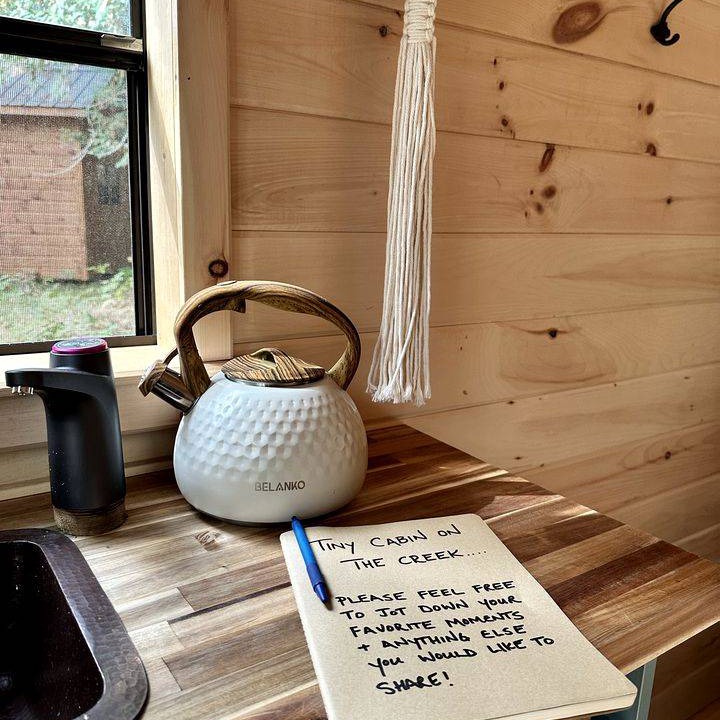 BELANKO
TINY CABIN ON
THE CREEK....
PLEASE FEEL FREE
TO JOT DOWN YOUR
FAVORITE MOMENTS
+ ANYTHING ELSE
YOU WOULD LIKE TO
SHARE!